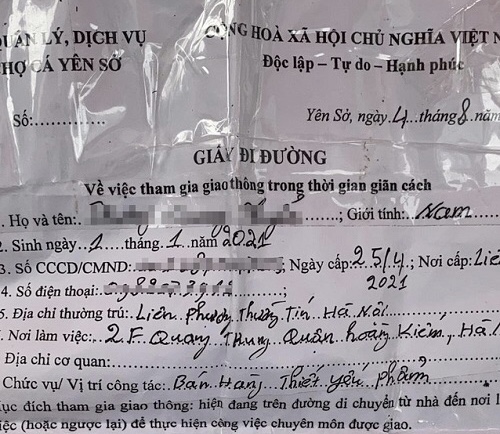 QUẢN LÝ, DỊCH VỤ CỘNG HOÀ XÃ HỘI CHỦ NGHĨA VIỆT N
HỢ CÁ YÊN SỞ Độc lập – Tự do – Hạnh phúc
Số:............. Yên Sở, ngày 4 tháng 8 năm
GIẤY ĐI ĐƯỜNG
Về việc tham gia giao thông trong thời gian giãn cách
1. Họ và tên: ; Giới tính: Nam
2. Sinh ngày 1 tháng 1 năm 2021
3. Số CCCD/CMND: ; Ngày cấp: 25/4 2021; Nơi cấp: Liê
4. Số điện thoại:
5. Địa chỉ thường trú: Liên Phương Thường Tín Hà Nội
Nơi làm việc: 2.F. Quang Trung Quận hoàng Kiếm, Hà
Địa chỉ cơ quan:
Chức vụ/ Vị trí công tác: Bán Hàng Thiết yếu phẩm
ục đích tham gia giao thông: hiện đang trên đường di chuyển từ nhà đến nơi l
iệc (hoặc ngược lại) để thực hiện công việc chuyên môn được giao.